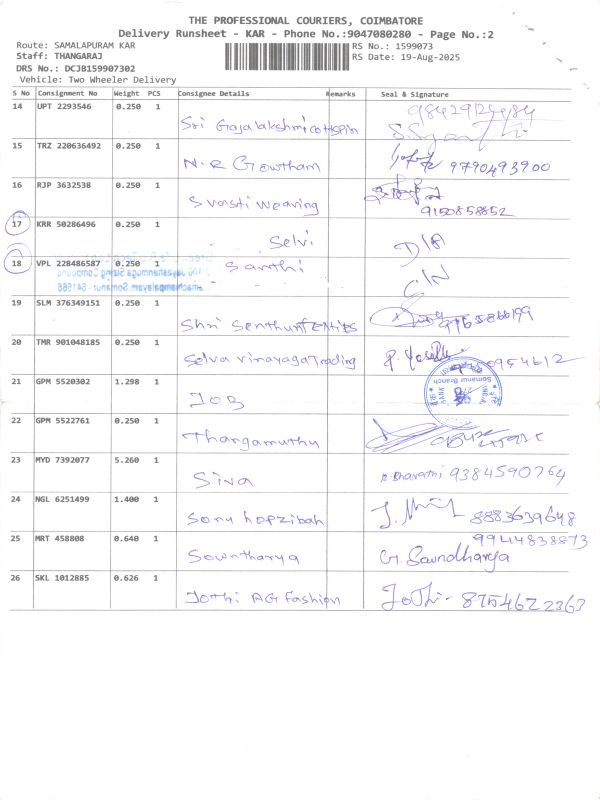 THE PROFESSIONAL COURIERS, COIMBATORE
Delivery Runsheet - KAR - Phone No.:9047080280 - Page No.:2
Route: SAMALAPURAM KAR RS No.: 1599073
Staff: THANGARAJ RS Date: 19-Aug-2025
DRS No.: DCJB159907302
Vehicle: Two Wheeler Delivery
S No Consignment No Weight PCS Consignee Details Remarks Seal & Signature
14 UPT 2293546 0.250 1
Sri Gajalakshmi
15 TRZ 220636492 0.250 1
N.R Gowtham 9790493900
16 RJP 3632538 0.250 1
Svasti Weaving 9150858852
17 KRR 50286496 0.250 1
Selvi D/A
18 VPL 228486587 0.250 1
Santhi C/N
19 SLM 376349151 0.250 1
Shri
20 TMR 901048185 0.250 1
Selva vinayaga Trading
21 GPM 5520302 1.298 1
JOB
Somanur Branch
22 GPM 5522761 0.250 1
Thangamuthu
23 MYD 7392077 5.260 1
Siva Bharathi 9384590764
24 NGL 6251499 1.400 1
Sonu hepzibah 8883639648
25 MRT 458808 0.640 1 9944838873
Sowntharya G. Soundharya
26 SKL 1012885 0.626 1
Jothi AG Fashion Jothi - 8754622363